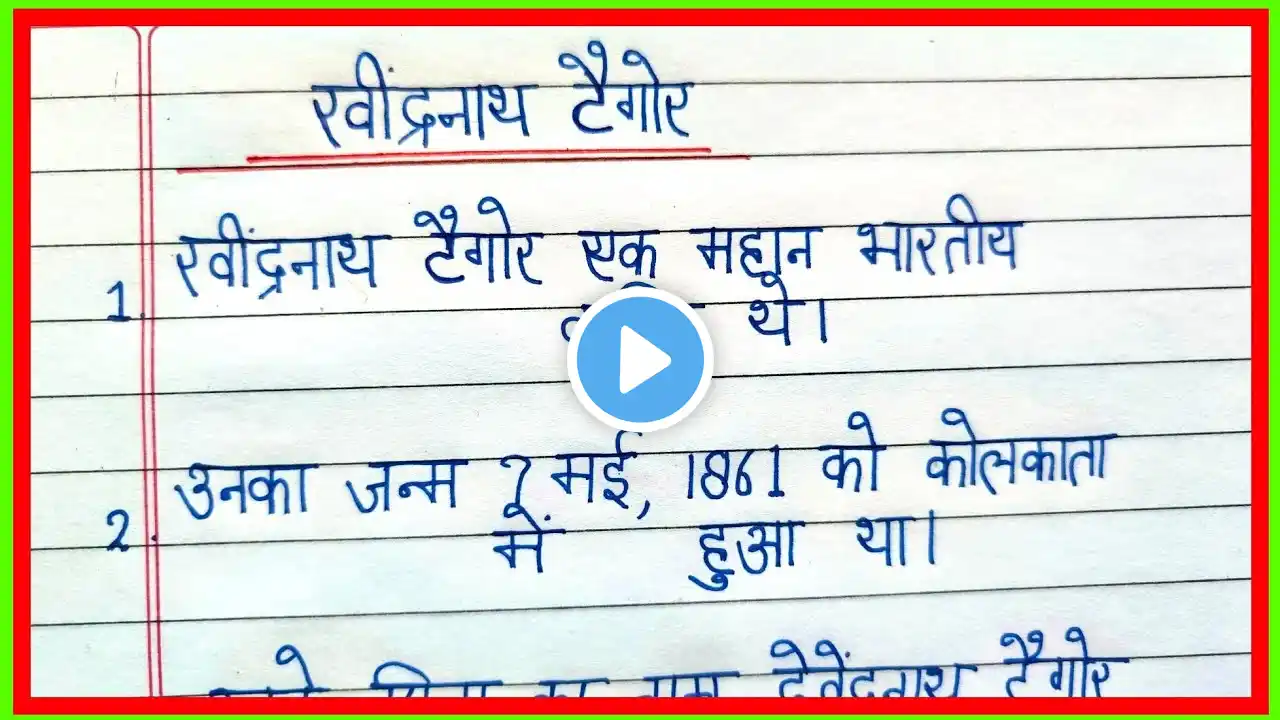 रवींद्रनाथ टैगोर
रवींद्रनाथ टैगोर एक महान भारतीय
1. थे।
उनका जन्म 7 मई, 1861 को कोलकाता
2. में हुआ था।
का नाम देवेंद्रनाथ टैगोर